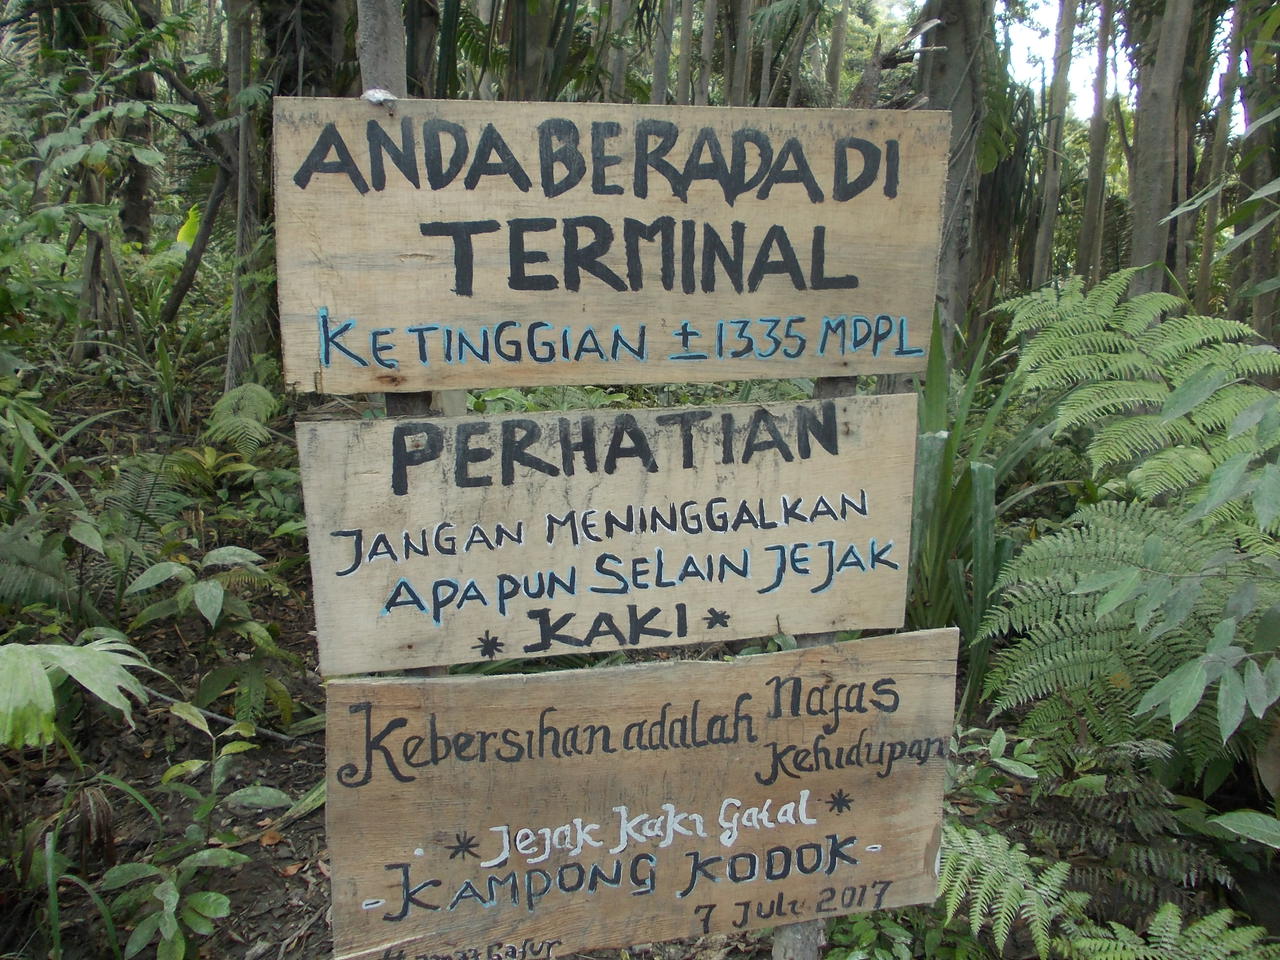 ANDA BERADA DI
TERMINAL
KETINGGIAN ± 1335 MDPL
PERHATIAN
JANGAN MENINGGALKAN
APAPUN SELAIN JEJAK
* KAKI *
Kebersihan adalah Nafas
Kehidupan
* Jejak Kaki Gatal *
- KAMPONG KODOK -
7 Juli 2017
Gafur